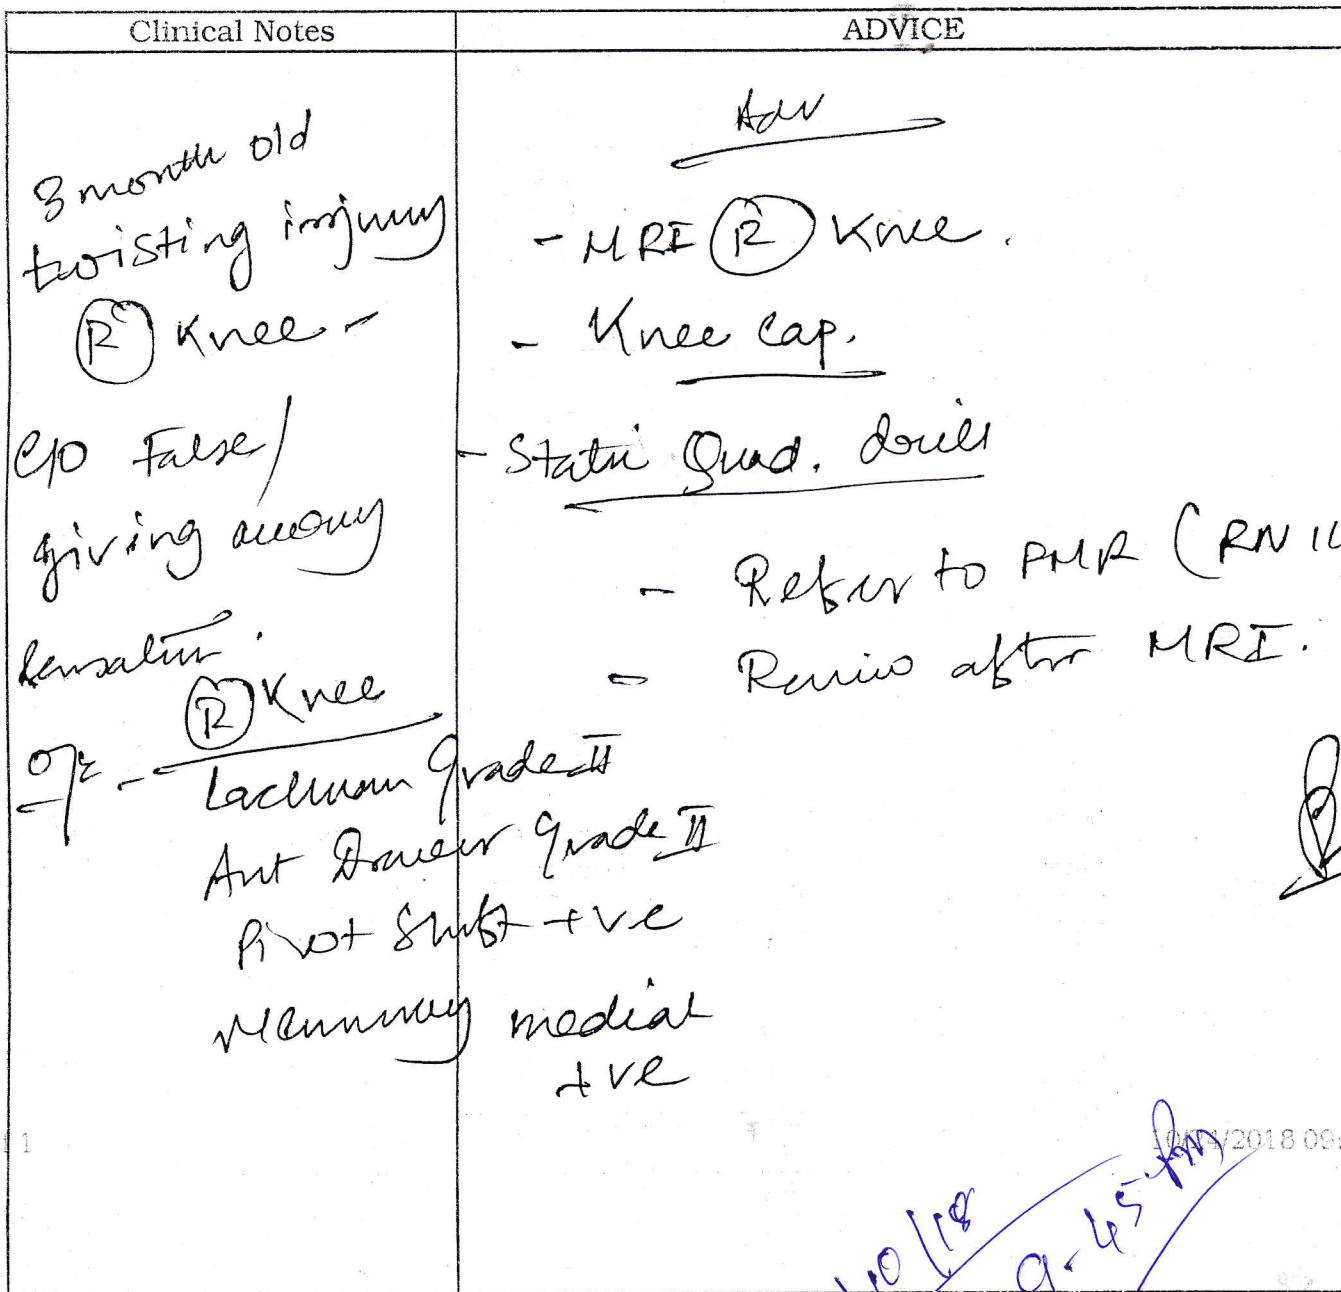 Clinical Notes
ADVICE
3 month old
twisting injury
(R) Knee -
C/O False/
giving away
sensation.
O/E - (R) Knee
Lachman Grade II
Ant Drawer Grade II
Pivot Shift +ve
McMurray medial
+ve
Adv
- MRI (R) Knee.
- Knee Cap.
- Static Quad. drill
- Refer to PMR (RN 11
- Review after MRI.
1
10/24/2018 09:
10/18
9.45 Am